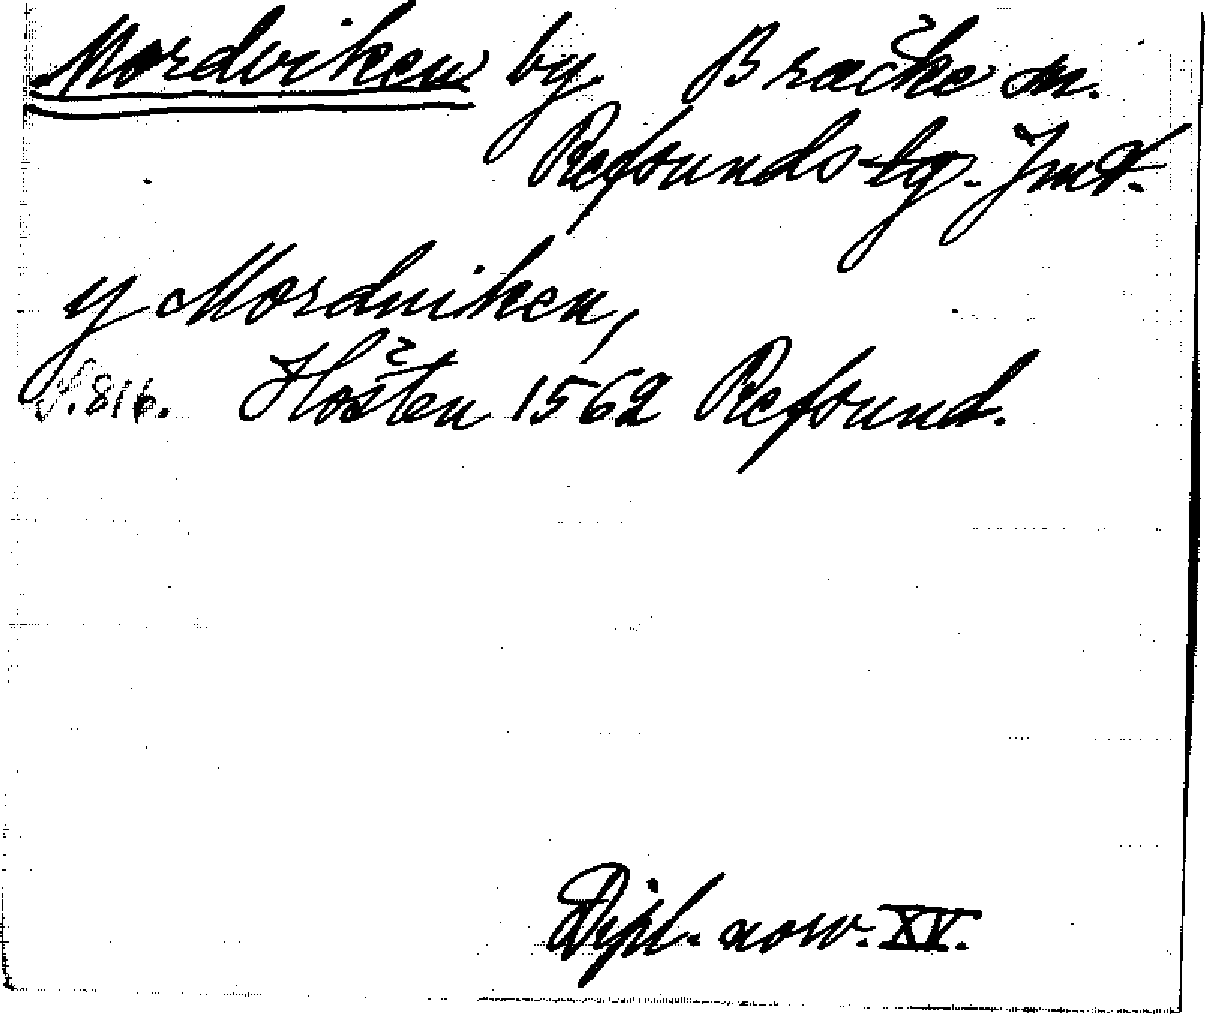 Mordviken by Bräcke sn.
Refsunds tg. Jmt.
y Mordviken,
S. 816. Hösten 1562 Refsund.
Dipl. norv. XV.